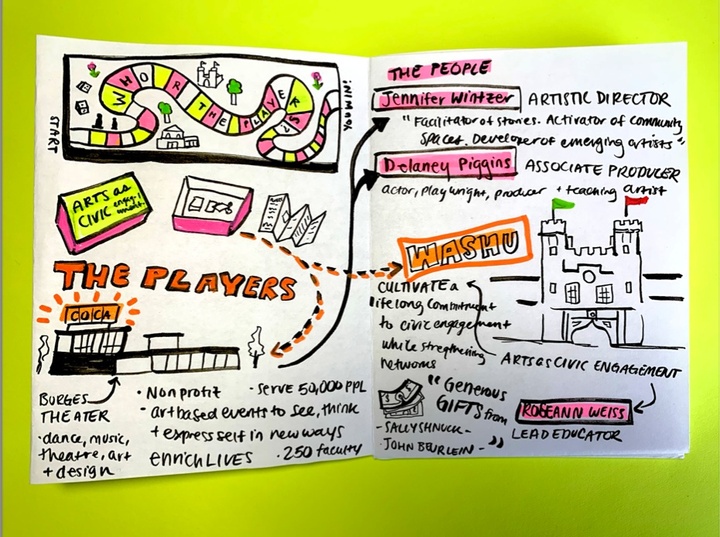 START
WHO R THE PLAYERS
YOU WIN!
ARTS as
CIVIC engage-
ment
THE PLAYERS
COCA
BURGES
THEATER
· dance, music,
theatre, art
+ design
· Nonprofit
- serve 50,000 PPL
- art based events to see, think
+ express self in new ways
enrich LIVES
· 250 faculty
THE PEOPLE
Jennifer Wintzer ARTISTIC DIRECTOR
"Facilitator of stories. Activator of community
Spaces. Developer of emerging artists"
Delaney Piggins ASSOCIATE PRODUCER
actor, playwright, producer + teaching artist
WASHU
CULTIVATE a
lifelong commitment
to civic engagement
while stregthening
networks
ARTS as CIVIC ENGAGEMENT
"Generous
GIFTS from
- SALLY SHNUCK -
- JOHN BEURLEIN - "
ROSEANN WEISS
LEAD EDUCATOR